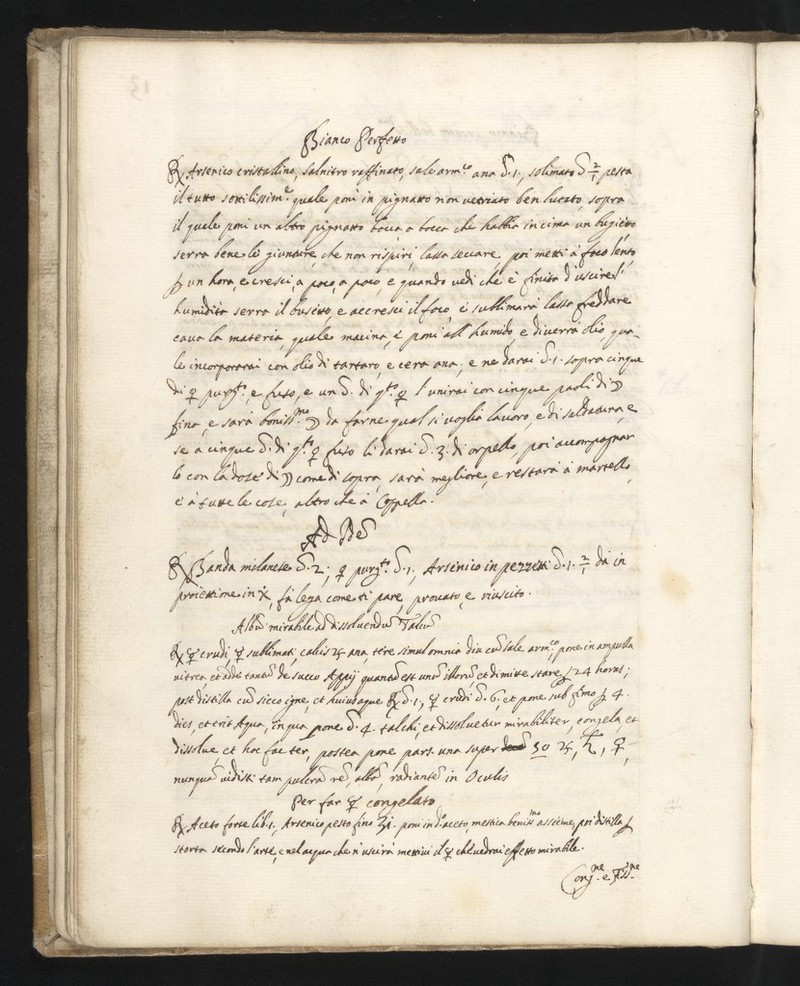 Bianco Perfetto
℞ Arsenico cristallino, Salnitro raffinato, sale arm.co ana ℥.1, solimato ℥ 2/1 pesta
il tutto sottilissim.e quale poni in pignatto non vetriato ben lutato, sopra
il quale poni un altro pignatto bocca a bocca che habbia in cima un bugietto
serra bene le giunture, che non rispiri, lassa seccare, poi metti à foco lento
p un hora, e cresci, a poco, a poco, e quando vedi che è finita d'uscire l'
humidità serra il buscetto, e accresci il foco, e sublimarà lassa freddare
cava la materia, quale macina, e poni all' humido, e diverrà olio, qua-
le incorporarai con olio di tartaro, e cera ana, e ne darai ℥.1. sopra cinque
di ♀ purg.to, e fuso, e un ℥. di q.to ♀ l'unirai con cinque paoli di ☽
fina, e sarà boniss.mo ☽ da farne qual si voglia lavoro, e di saldatura, e
se a cinque ℥. di q.to ♀ fuso li darai ℥.3. di orpello, poi accompagnar
lo con la dose di ☽ come di sopra, sarà megliore, e restarà à martello,
e à tutte le cose, altro che à Coppella.
Ad Idē
℞ Banda milanese ℥.2., ♀ purg.to ℥.1., Arsenico in pezzetti ℥.1. 2/1 dà in
proiettione in, fà lega come ti pare, provato, e riuscito.
Albū mirabile ad dissolvendū Talcū
℞ ☿ crudi, ☿ sublimati, calcis ♃ ana, tere simul omnia diu cū sale arm.co, pone in ampulla
vitrea, et adde tantū de succo Appij quantū est unū illorū et dimitte stare p 24 horas;
post distilla cū sicco igne, et huius aque ℞ ℥.1, ☿ crudi ℥.6. et pone sub fimo p 4.
dies, et erit Aqua, in qua pone ℥.4. talchi, et dissolvetur mirabiliter, congela et
dissolve, et hoc fac ter, postea pone pars una super 50 ♃, ♄, ♀,
nunquā vidisti tam pulcrā rē, albā, radiantē in Oculis
Per far ☿ congelato
℞ Aceto forte lib.1., Arsenico pesto fino ℥i. poni in d.o aceto, mestica beniss.mo assieme, poi distilla p
storta secondo l'arte, e nel acqua che n'uscirà mettivi il ☿ che vedrai effetto mirabile.
Cong.ne e Fiss.ne